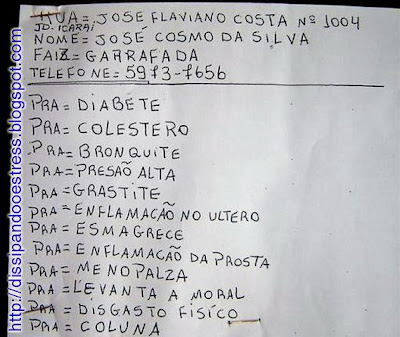 RUA = JOSE FLAVIANO COSTA Nº 1004
JD. ICARAI
NOME = JOSÉ COSMO DA SILVA
FAIZ = GARRAFADA
TELEFONE = 5973-7656
PRA = DIABETE
PRA = COLESTERO
PRA = BRONQUITE
PRA = PRESÃO ALTA
PRA = GRASTITE
PRA = ENFLAMACÃO NO ULTERO
PRA = ESMAGRECE
PRA = ENFLAMACÃO DA PROSTA
PRA = MENOPALZA
PRA = LEVANTA A MORAL
PRA = DISGASTO FÍSÍCO
PRA = COLUNA
http://dissipandooestress.blogspot.com